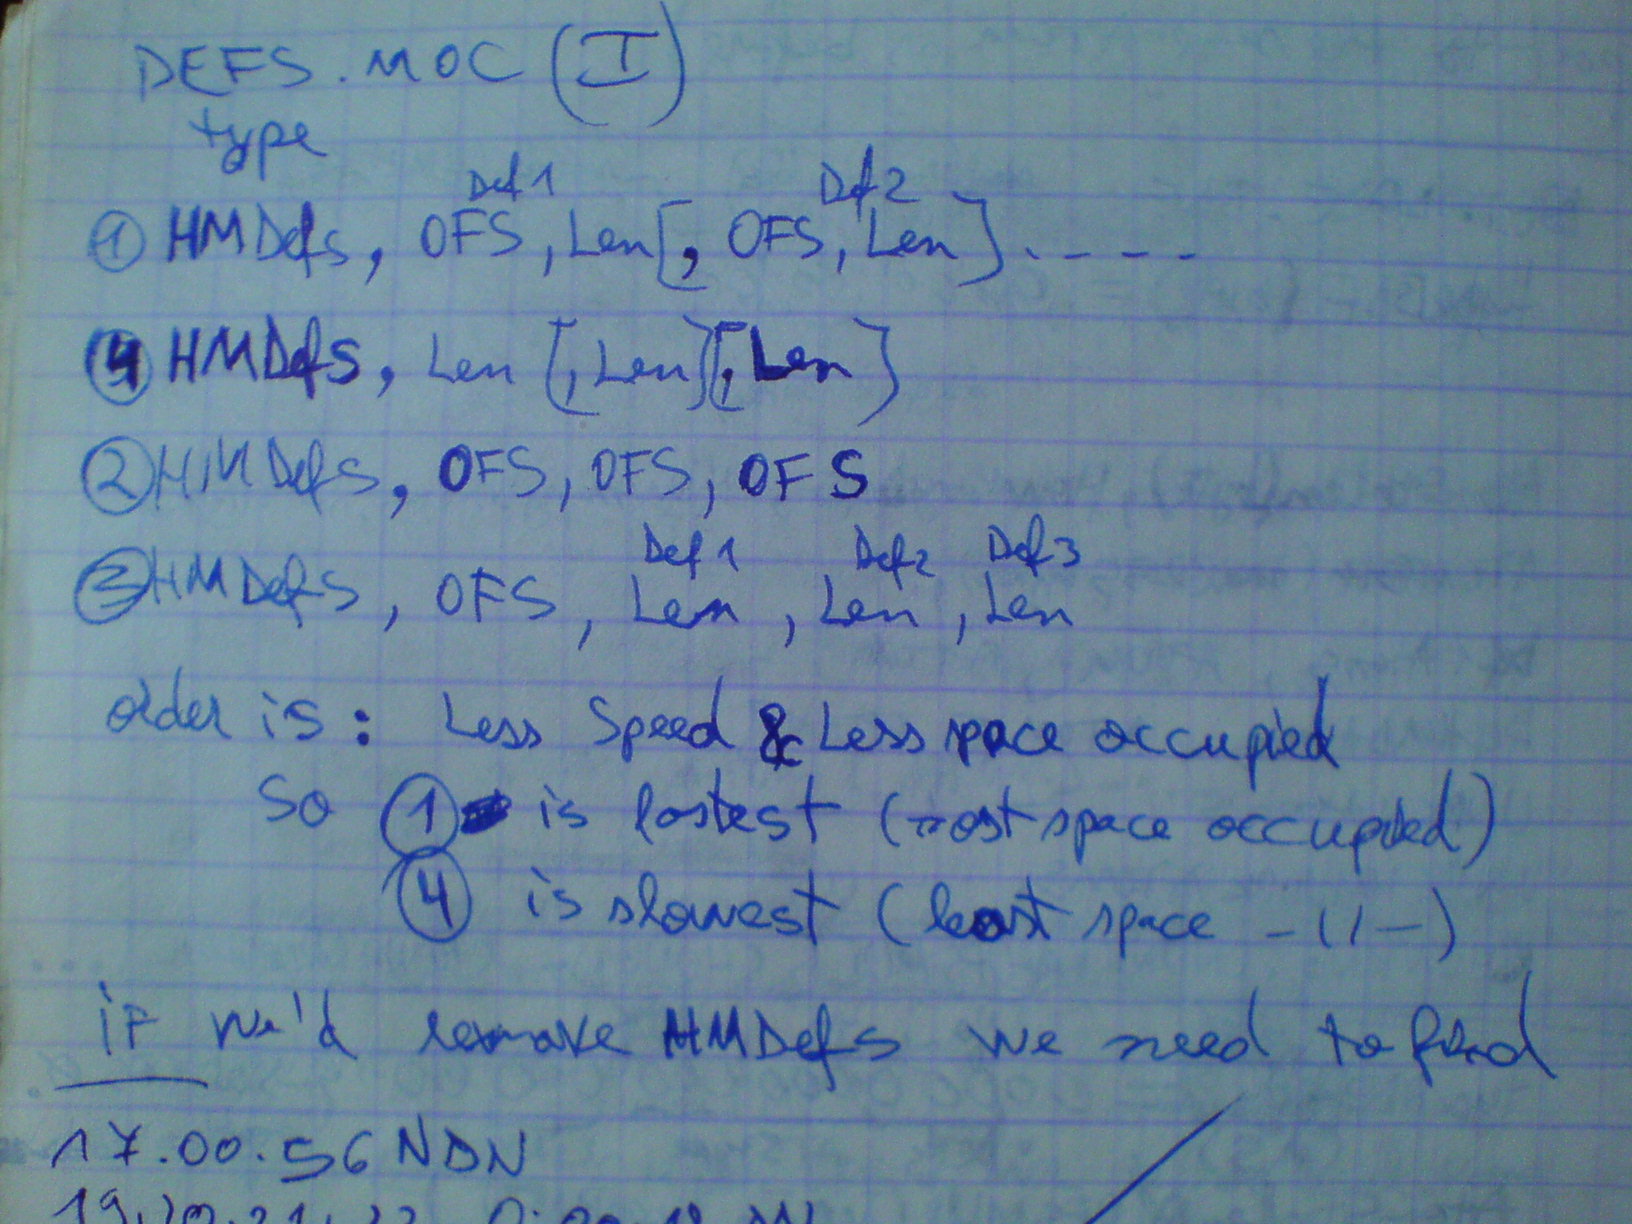 DEFS.MOC (I)
type
Def1 Def2
① HMDefs, OFS, Len[, OFS, Len]. - - - -
④ HMDefs, Len [, Len][, Len]
② HMDefs, OFS, OFS, OFS
Def1 Def2 Def3
③ HMDefs, OFS, Len, Len, Len
order is: Less Speed & Less space occupied
So ① is fastest (most space occupied)
④ is slowest (least space -//-)
if we'd remove HMDefs we need to find
17.00.56 NDN